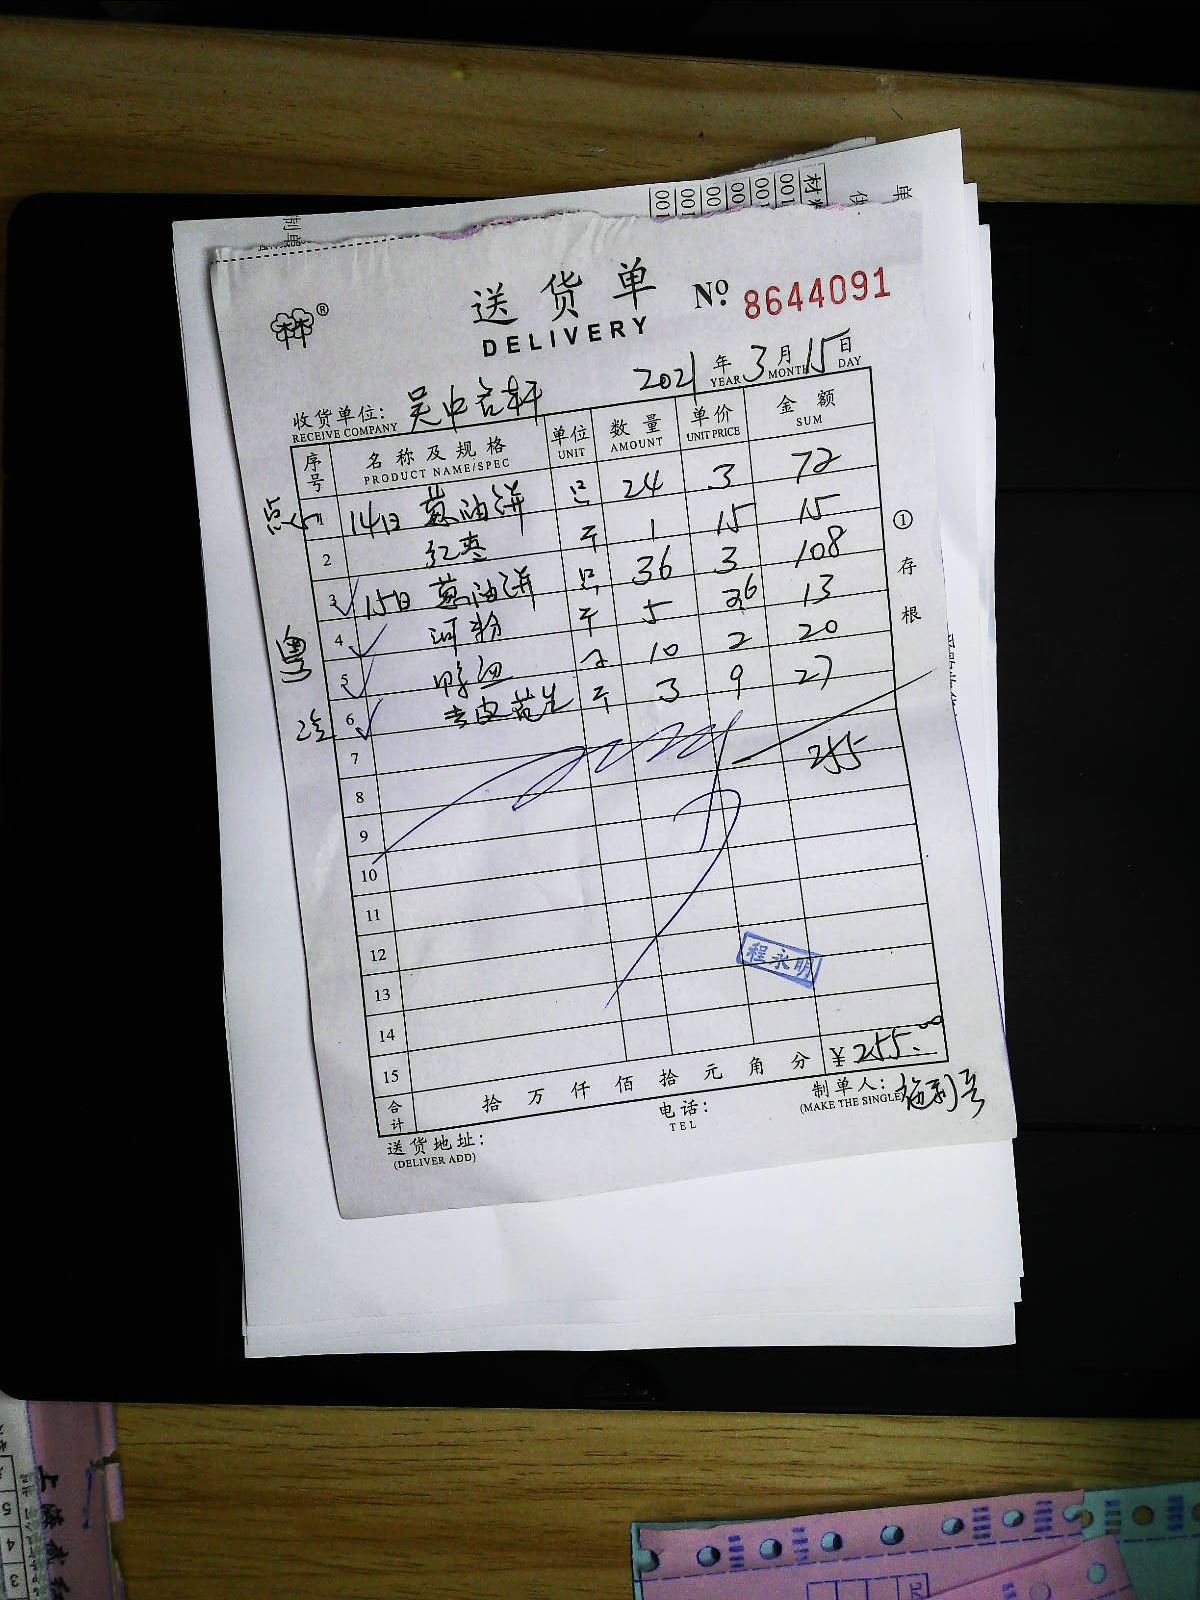 送货单 No. 8644091
DELIVERY
2021年3月15日
YEAR MONTH DAY
收货单位：吴中名轩
RECEIVE COMPANY
序号 名称及规格 单位 数量 单价 金额
PRODUCT NAME/SPEC UNIT AMOUNT UNIT PRICE SUM
点心 1 14日 葱油饼 只 24 3 72
2 红枣 斤 1 15 15
3 15日 葱油饼 只 36 3 108
粤 4 河粉 斤 5 2.6 13
5 10 2 20
冷 6 去皮花生 斤 3 9 27
7
8 255
9
10
11
12
13
14
15
程永明
合计 拾万仟佰拾元角分 ¥255.00
送货地址： 电话： 制单人：
(DELIVER ADD) TEL (MAKE THE SINGLE)
①存根